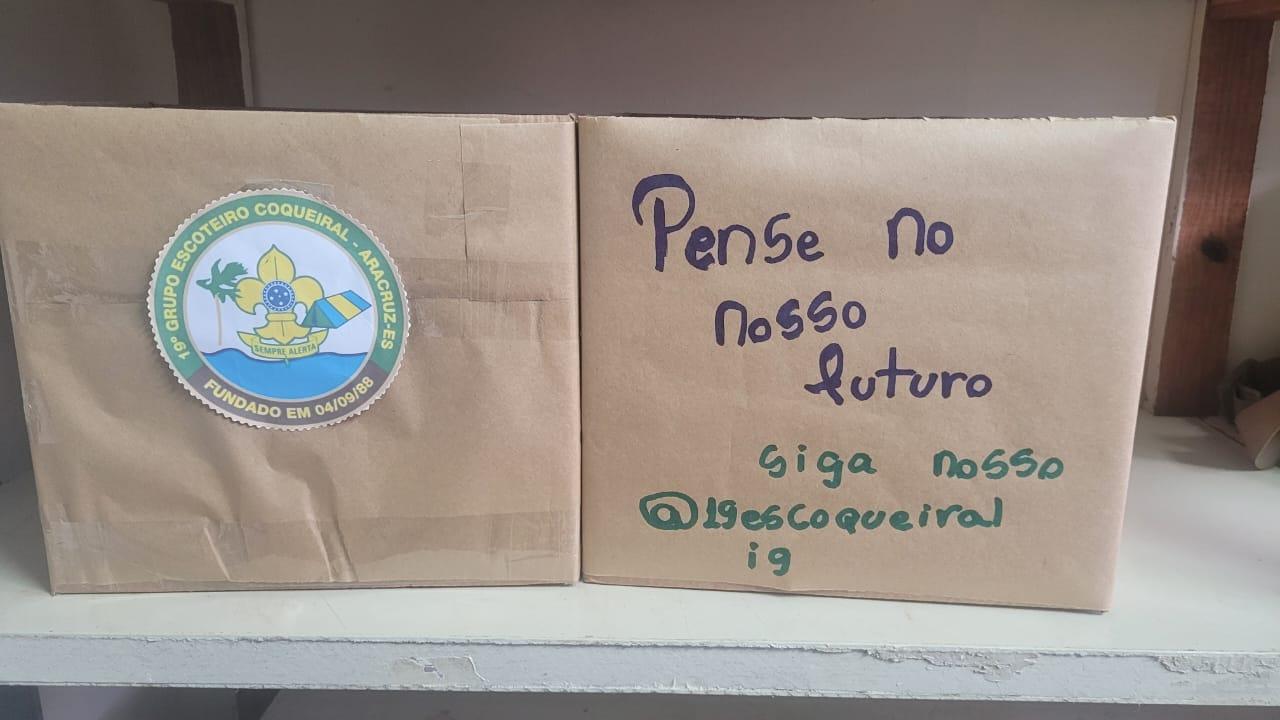 19º GRUPO ESCOTEIRO COQUEIRAL - ARACRUZ-ES
SEMPRE ALERTA
FUNDADO EM 04/09/88
Pense no
nosso
futuro
siga nosso
@19escoqueiral
ig